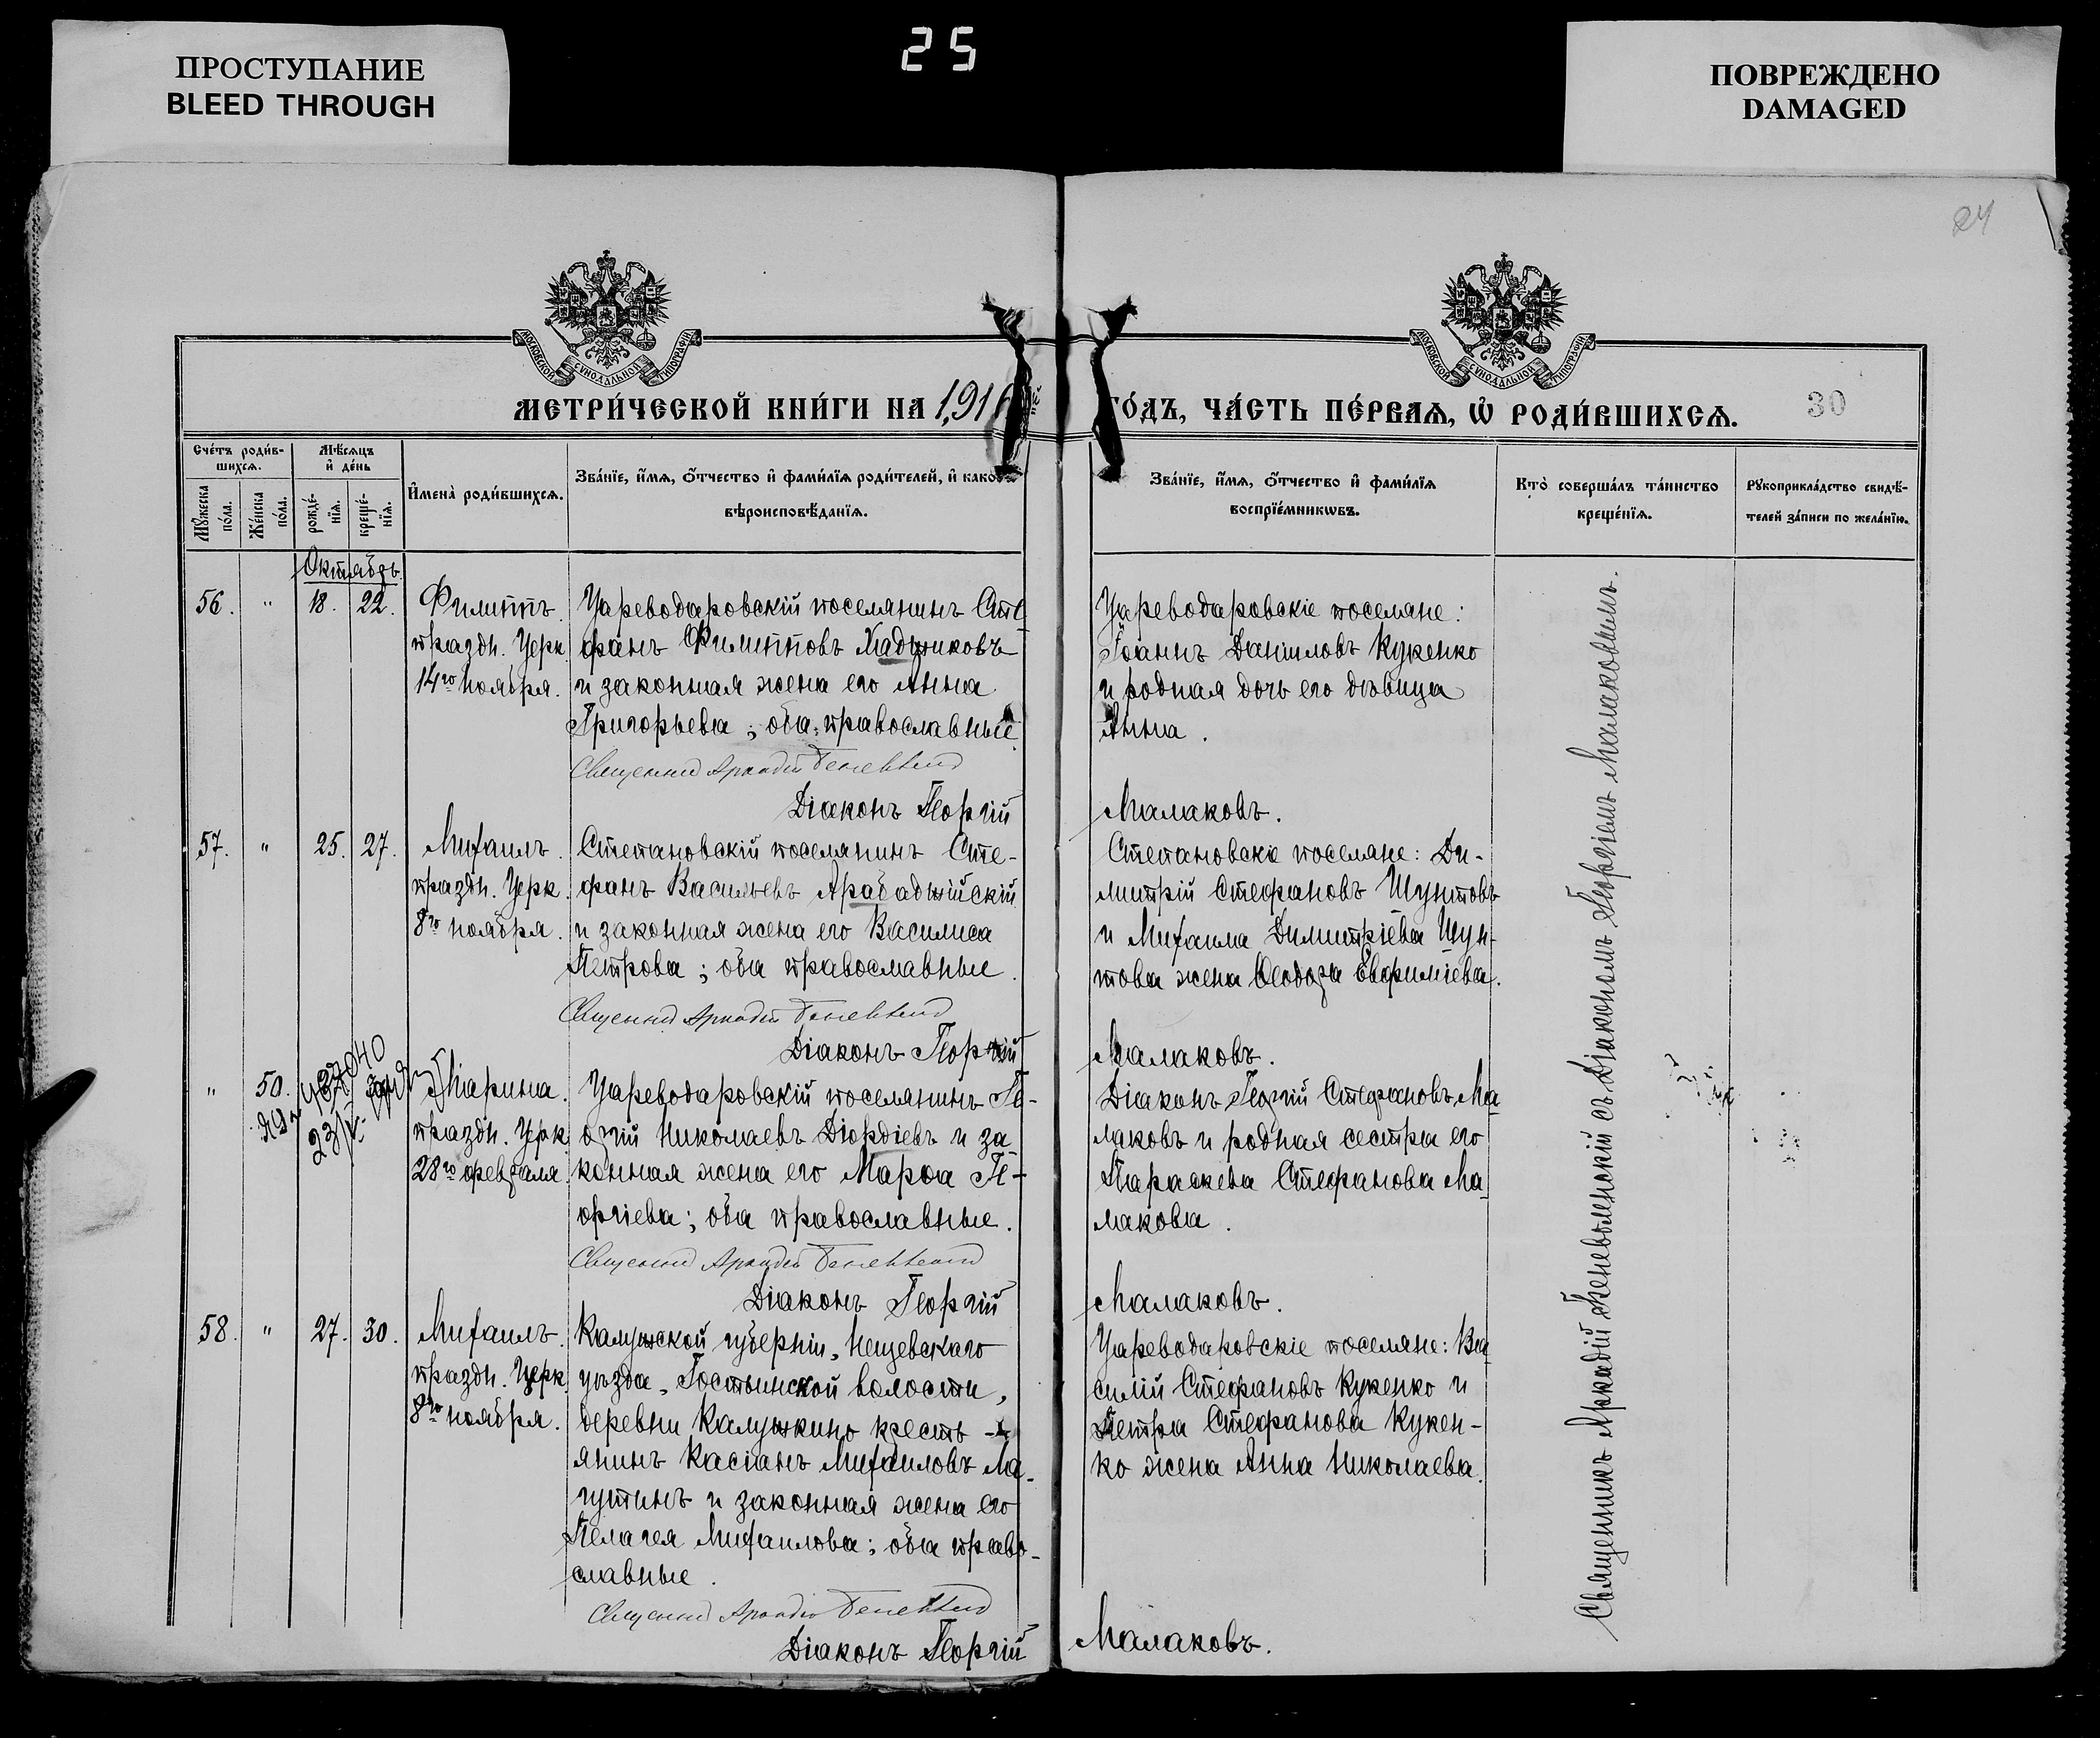 ПРОСТУПАНИЕ
BLEED THROUGH
25
ПОВРЕЖДЕНО
DAMAGED
24
МОСКОВСКОЙ СѴНОДАЛЬНОЙ ТИПОГРАФІИ
МОСКОВСКОЙ СѴНОДАЛЬНОЙ ТИПОГРАФІИ
МЕТРИ́ЧЕСКОЙ КНИ́ГИ НА 1916
ГО́ДЪ, ЧА́СТЬ ПЕ́РВАѦ, Ѡ҆ РОДИ́ВШИХСѦ.
30
Сче́тъ роди́в-
шихсѧ.
Мꙋжеска
по́ла.
Же́нска
по́ла.
Мѣ́сѧцъ
и҆ де́нь
рожде́-
нїѧ.
креще́-
нїѧ.
И҆мена̀ роди́вшихсѧ.
Зва́нїе, и҆́мѧ, ѻ҆́тчество и҆ фами́лїѧ роди́телей, и҆ како́гѡ
вѣроисповѣ́данїѧ.
Зва́нїе, и҆́мѧ, ѻ҆́тчество и҆ фами́лїѧ
воспрїе́мникѡвъ.
Кто̀ соверша́лъ та́инство
креще́нїѧ.
Рꙋкоприкла́дство свидѣ́-
телей за́писи по жела́нїю.
Октябрь
56. " 18. 22.
Филиппъ.
праздн. Церк.
14го ноября.
Цареводаровскій поселянинъ Сте
фанъ Филипповъ Хаджиковъ
и законная жена его Анна
Григорьева; оба православные
Священникъ Аркадій
Діаконъ Георгій
Цареводаровскіе поселяне:
Іоаннъ Даніиловъ Кукенко
и родная дочь его дѣвица
Анна.
Малаковъ.
57. " 25. 27.
Михаилъ.
праздн. Церк.
8го ноября.
Степановскій поселянинъ Сте-
фанъ Васильевъ Арабаджійскій
и законная жена его Василиса
Петрова; оба православные.
Священникъ Аркадій
Діаконъ Георгій
Степановскіе поселяне: Ди-
митрій Стефановъ Шунтовъ
и Михаила Димитріева Шун-
това жена Ѳеодора Евфиміева.
Малаковъ.
" 50.
Марина.
праздн. Церк.
28го февраля.
Цареводаровскій поселянинъ Ге-
оргій Николаевъ Діордіевъ и за
конная жена его Марѳа Ге-
оргіева; оба православные.
Священникъ Аркадій
Діаконъ Георгій
Діаконъ Георгій Стефановъ Ма
лаковъ и родная сестра его
Параскева Стефанова Ма
лакова.
Малаковъ.
58. " 27. 30.
Михаилъ.
праздн. Церк.
8го ноября.
Калужской губерніи, Мещевскаго
уѣзда, Гостынской волости,
деревни Калужкино кресть-
янинъ Касіанъ Михаиловъ Ла-
гутинъ и законная жена его
Пелагея Михаилова; оба право-
славные.
Священникъ Аркадій
Діаконъ Георгій
Цареводаровскіе поселяне: Ва
силій Стефановъ Кукенко и
Петра Стефанова Кукен-
ко жена Анна Николаева.
Малаковъ.
Священникъ Аркадій съ Діакономъ Георгіемъ Малаковымъ.